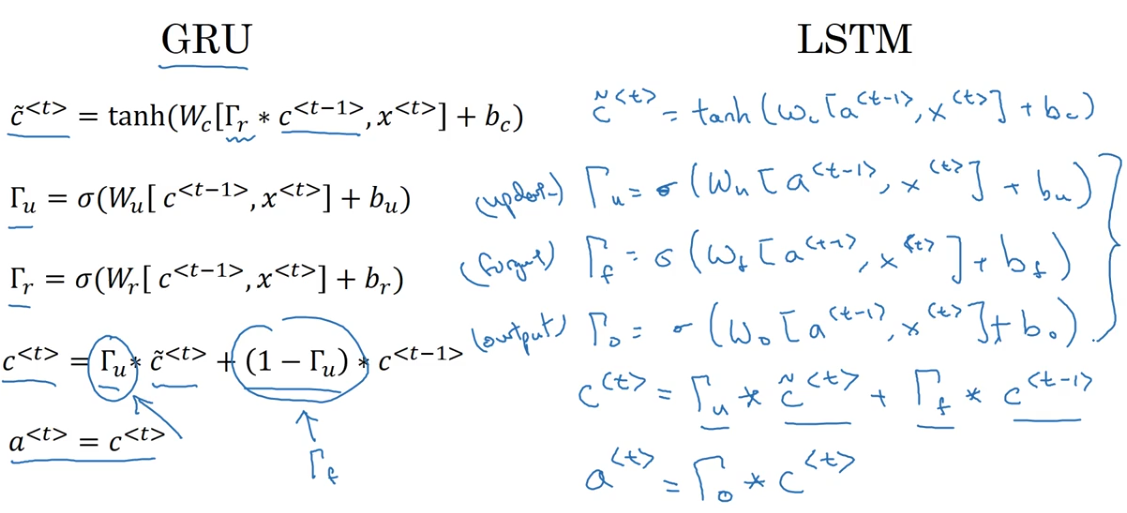 GRU
c̃^<t> = tanh(W_c[Γ_r * c^<t−1>, x^<t>] + b_c)
Γ_u = σ(W_u[ c^<t−1>, x^<t>] + b_u)
Γ_r = σ(W_r[ c^<t−1>, x^<t>] + b_r)
c^<t> = Γ_u * c̃^<t> + (1 − Γ_u) * c^<t−1>
Γ_f
a^<t> = c^<t>
LSTM
c̃^<t> = tanh(W_c[a^<t-1>, x^<t>] + b_c)
Γ_u = σ(W_u[a^<t-1>, x^<t>] + b_u)
(forget) Γ_f = σ(W_f[a^<t-1>, x^<t>] + b_f)
(output) Γ_o = σ(W_o[a^<t-1>, x^<t>] + b_o)
c^<t> = Γ_u * c̃^<t> + Γ_f * c^<t-1>
a^<t> = Γ_o * c^<t>